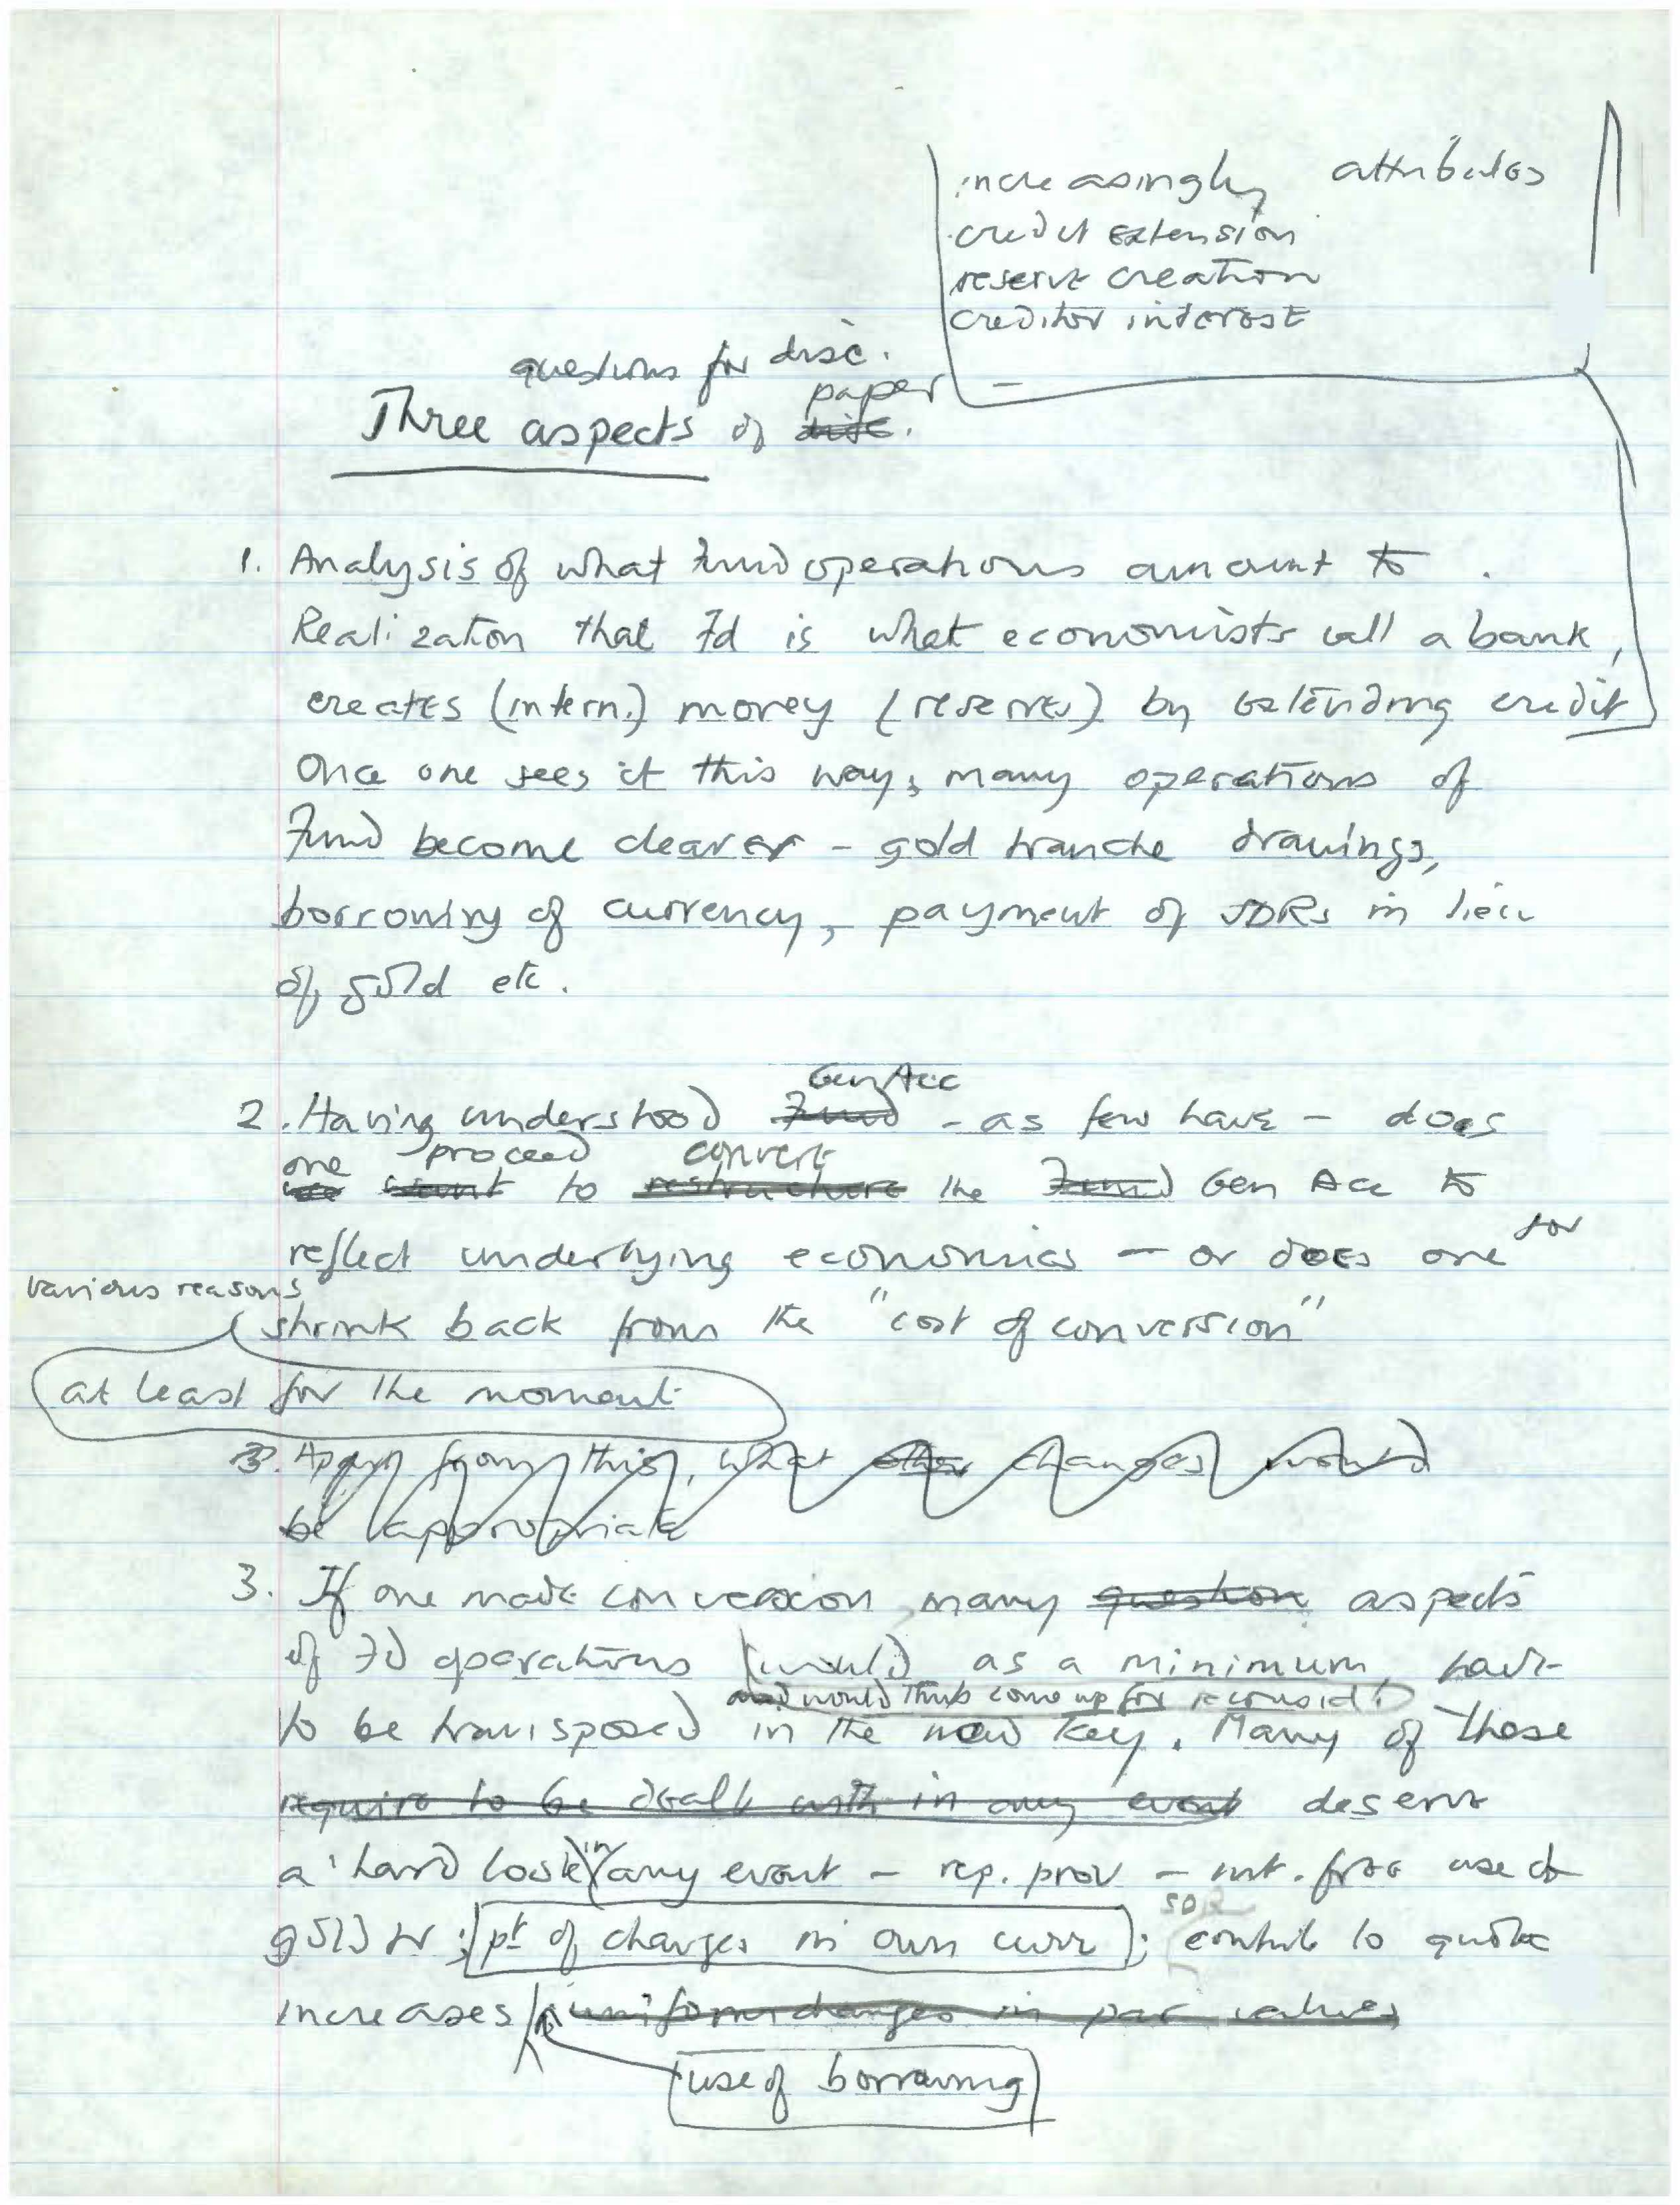 increasingly attributes
credit extension
reserve creation
creditor interest
questions for disc.
paper
Three aspects of disc.
1. Analysis of what Fund operations amount to .
Realization that Fd is what economists call a bank,
creates (intern.) money (reserves) by extending credit
Once one sees it this way, many operations of
Fund become clearer - gold tranche drawings,
borrowing of currency, payment of SDRs in lieu
of gold etc.
Gen Acc
2. Having understood Fund - as few have - does
one proceed convert
we want to restructure the Fund Gen Acc to
reflect underlying economics - or does one for
various reasons
shrink back from the "cost of conversion"
at least for the moment
3. Apart from this, what other changes would
be appropriate
3. If one made conversion, many question aspects
of Fd operations would, as a minimum, have
and would thus come up for reconsid.
to be transposed in the new key. Many of these
require to be dealt with in any event deserve
a 'hard look' in any event - rep. prov - free use of
gold ; pt of charges in own curr ; SDR contrib to quota
increases uniform changes in par values
use of borrowing